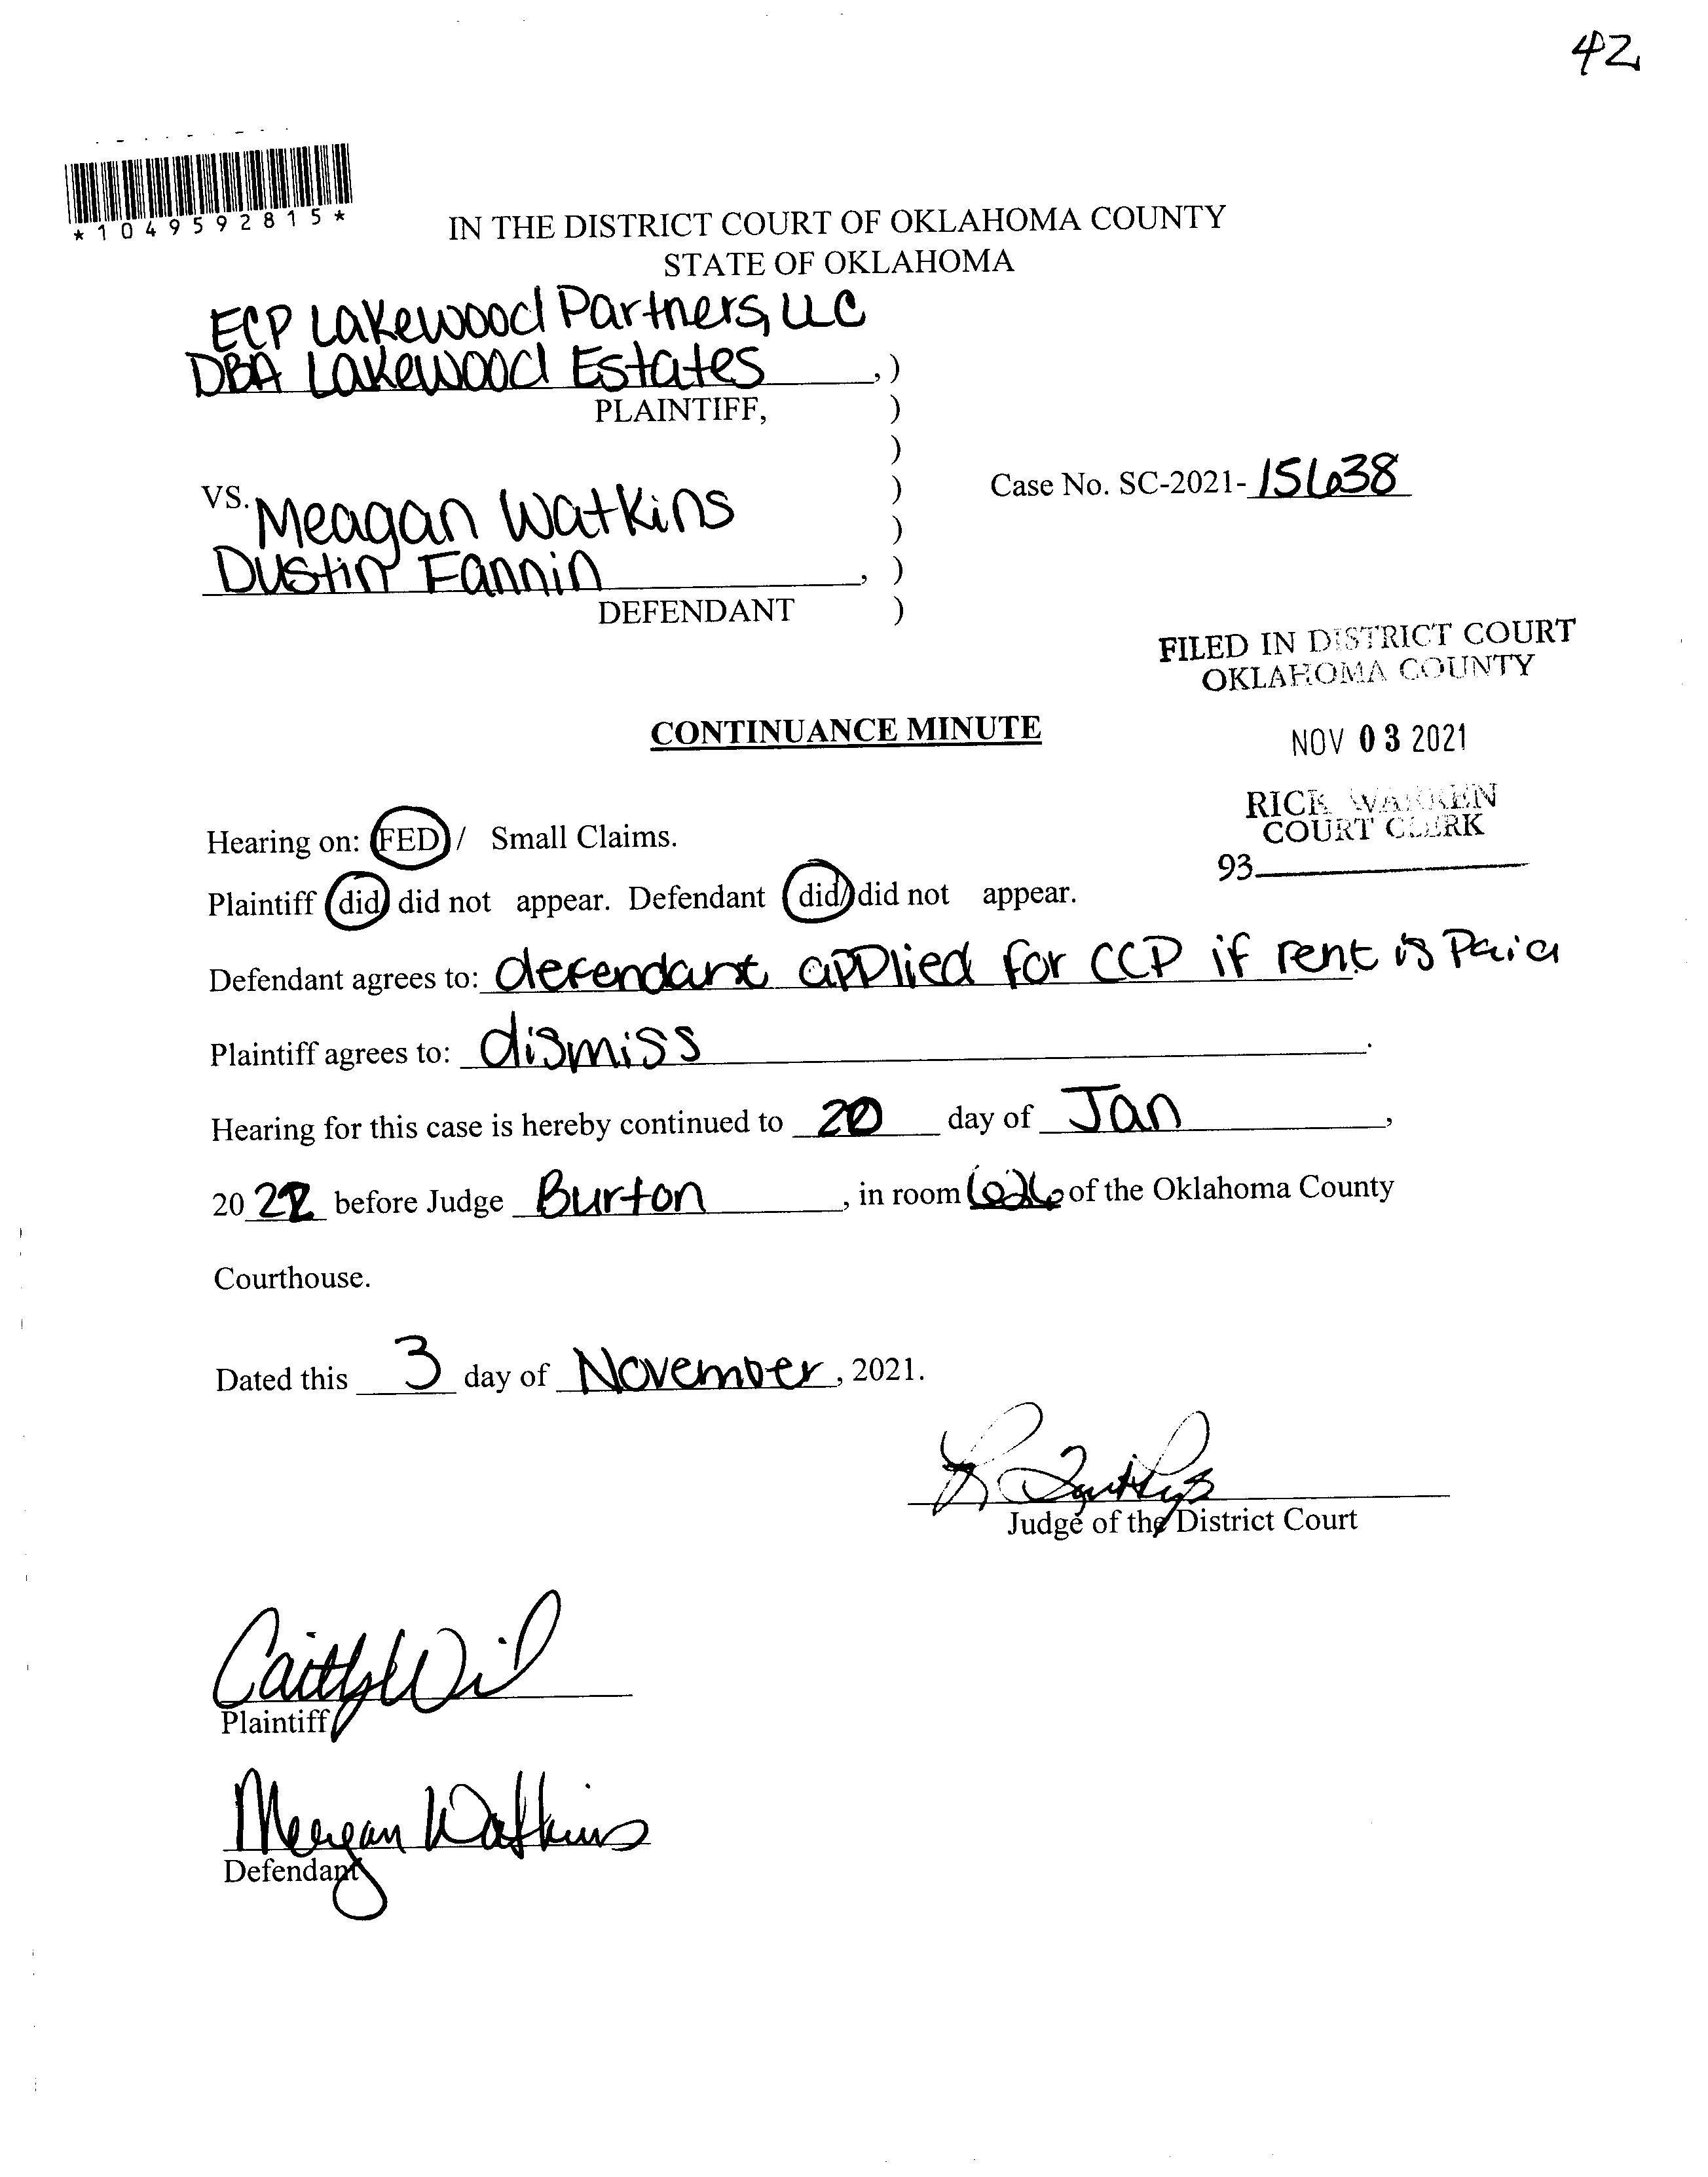 42
*1049592815*
IN THE DISTRICT COURT OF OKLAHOMA COUNTY
STATE OF OKLAHOMA
ECP Lakewood Partners, LLC
DBA Lakewood Estates , )
PLAINTIFF, )
)
VS. Meagan Watkins )
Case No. SC-2021-15638
)
Dustin Fannin , )
DEFENDANT )
FILED IN DISTRICT COURT
OKLAHOMA COUNTY
CONTINUANCE MINUTE
NOV 03 2021
RICK WARREN
COURT CLERK
93
Hearing on: FED / Small Claims.
Plaintiff did/ did not appear. Defendant did/ did not appear.
Defendant agrees to: defendant applied for CCP if rent is Paid
Plaintiff agrees to: dismiss .
Hearing for this case is hereby continued to 20 day of Jan ,
2022 before Judge Burton , in room 626 of the Oklahoma County
Courthouse.
Dated this 3 day of November, 2021.
Judge of the District Court
Plaintiff
Meagan Watkins
Defendant